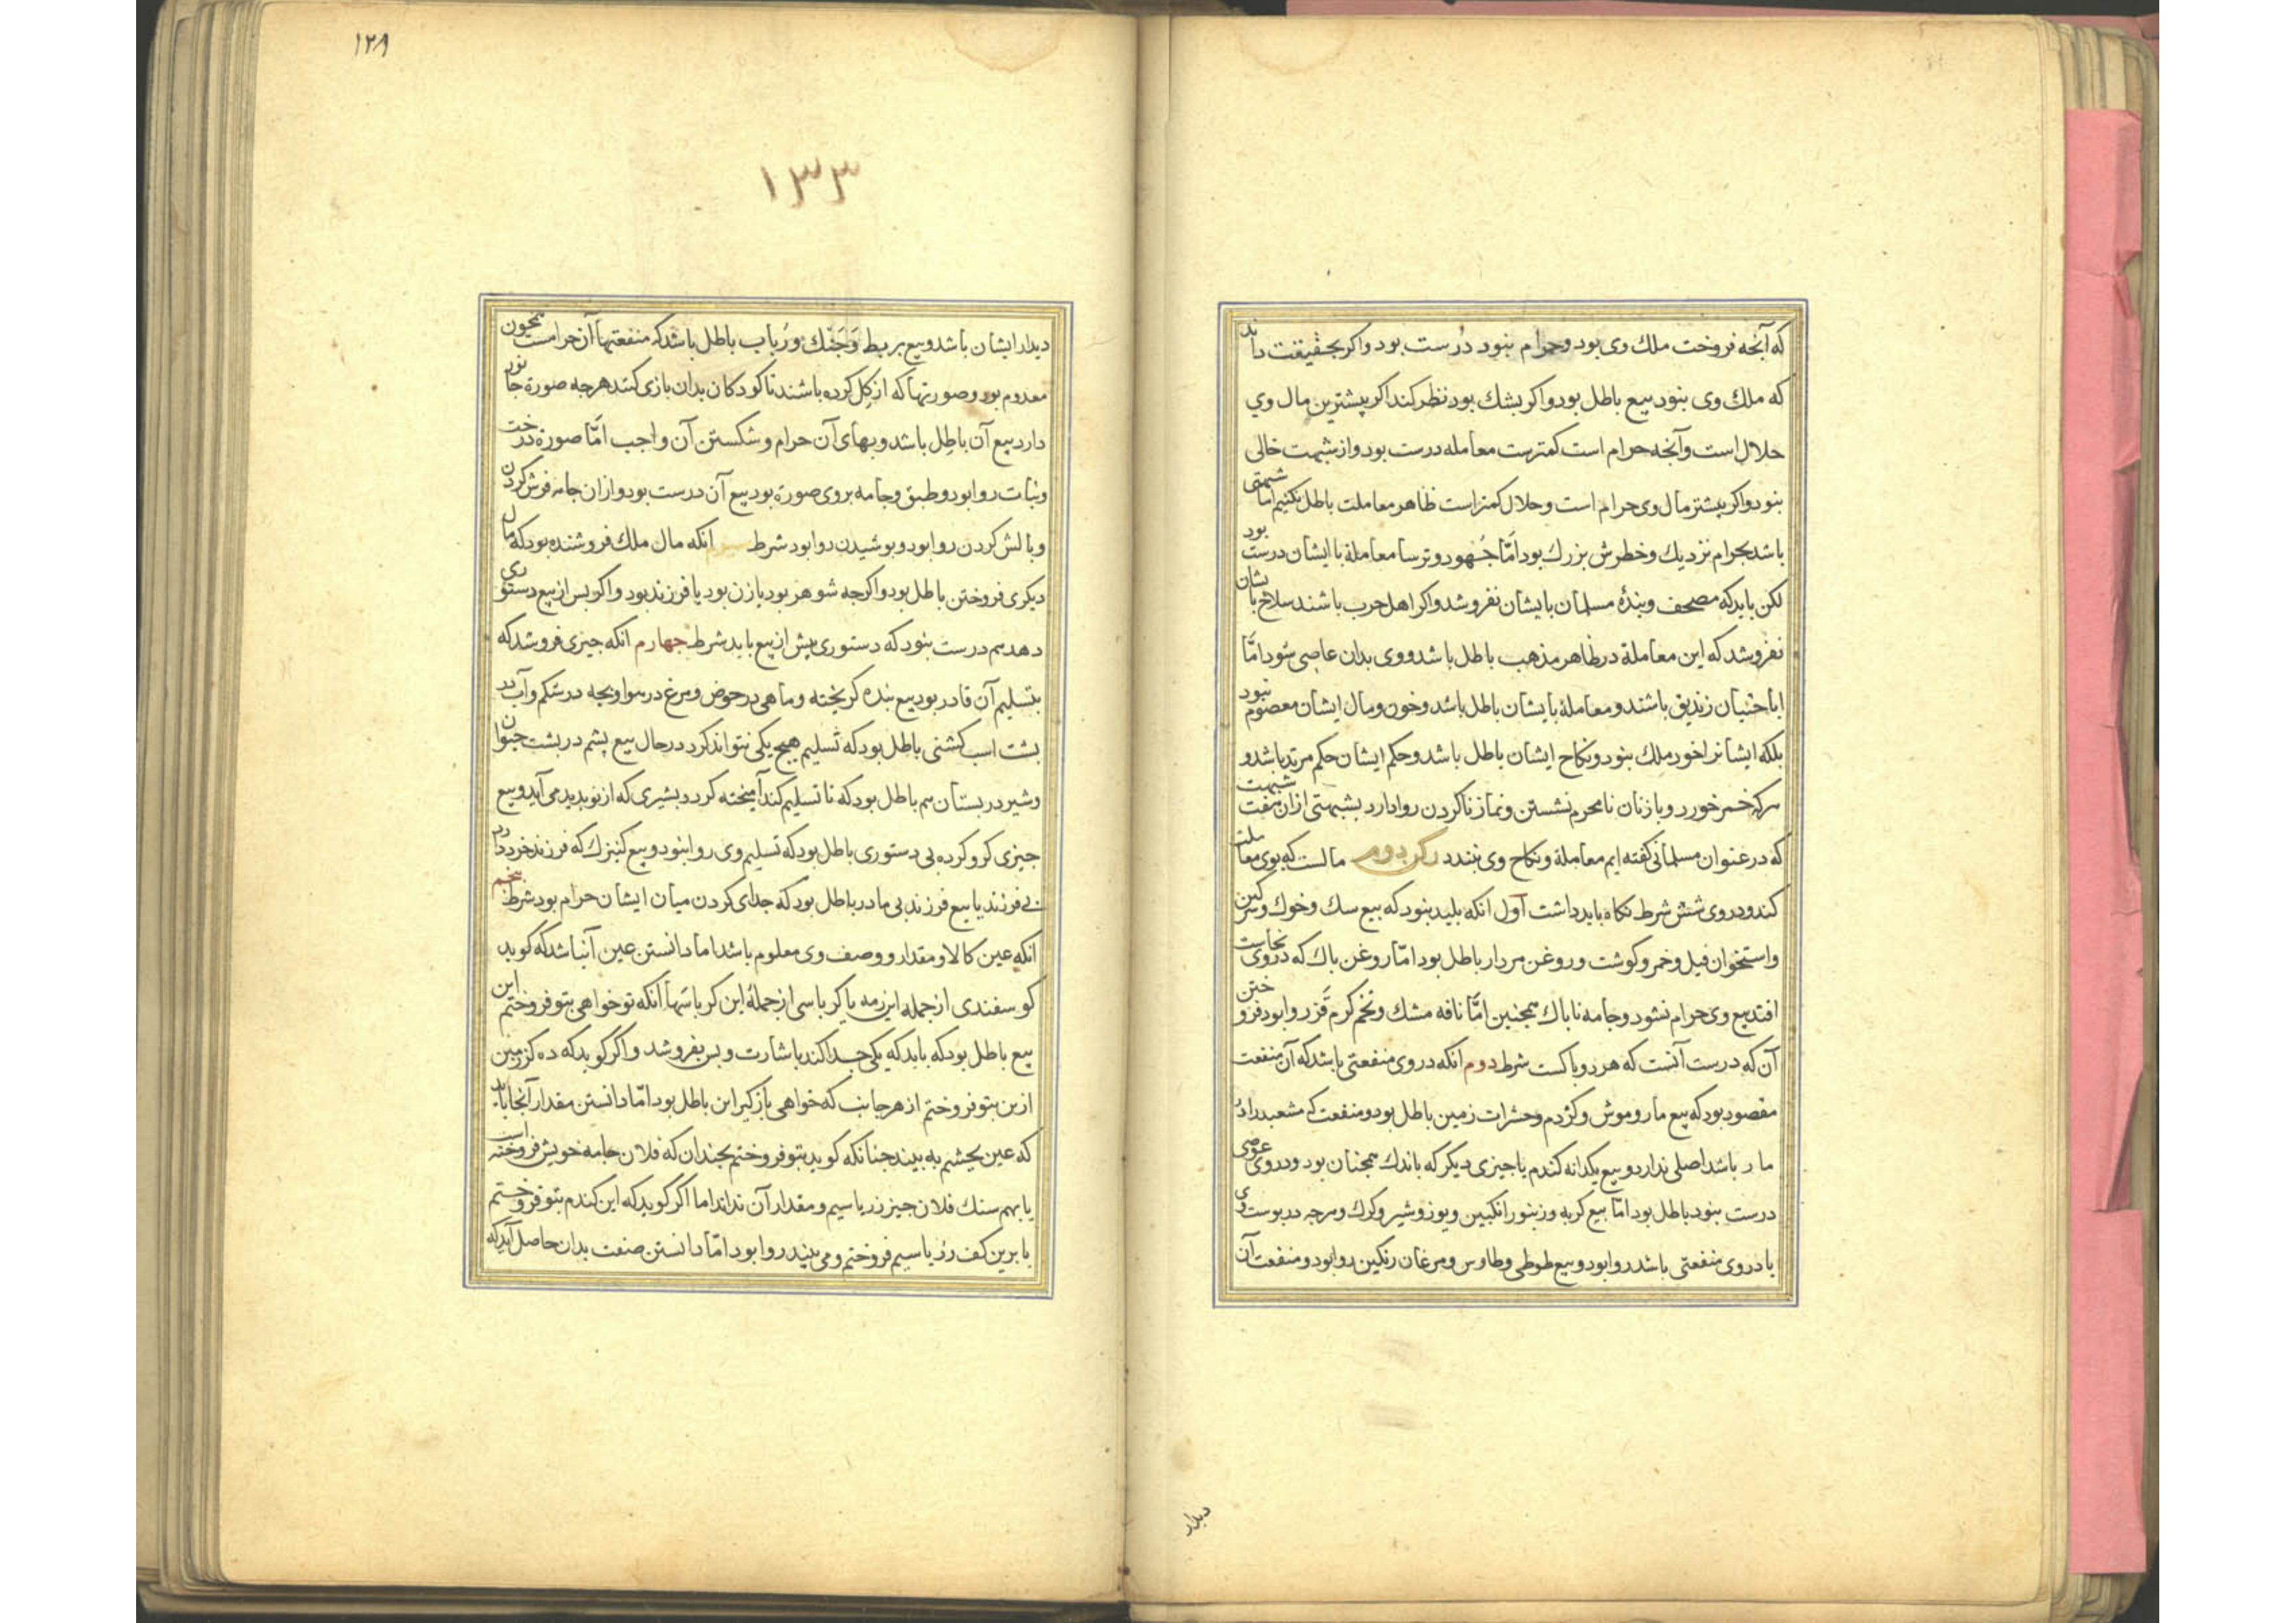 که آنجه فروخت ملك وی بود وحرام نبود دُرست بود واکر بحقیقت داند
که ملك وی نبود بیع باطل بود واکر بشك بود نظر کند اکر پیشترین مال وي
حلال است وآنجه حرام است کمترست معامله درست بود واز شبهت خالی
نبود واکر بیشتر مال وی حرام است وحلال کمتر است ظاهر معاملت باطل نکنیم اما شبهتی
باشد بحرام نزدیك وخطرش بزرك بود امّا جُهود وترسا معاملة با ایشان درست بود
لکن باید که مصحف وبندۀ مسلمان بایشان نفروشد واکر اهل حرب باشند سلاح بایشان
نفروشد که این معاملة در ظاهر مذهب باطل باشد ووی بدان عاصی شود امّا
اباحتیان زندیق باشند ومعاملۀ بایشان باطل باشد وخون ومال ایشان معصوم نبود
بلکه ایشانرا خود ملك نبود ونکاح ایشان باطل باشد وحکم ایشان حکم مرتد باشد و
هرکه خمر خورد وبا زنان نامحرم نشستن ونماز ناکردن روا دارد بشبهتی ازان هفت شبهت
که در عنوان مسلمانی کفته ایم معاملة ونکاح وی نبندد رکن دوم مالست که بوی معاملت
کند ودروی شش شرط نکاه باید داشت آول انکه بلید نبود که بیع سك وخوك وسرکین
واستخوان فیل وخمر وکوشت وروغن مردار باطل بود امّا روغن باك که دروی نجاست
افتد بیع وی حرام نشود وجامه ناباك همجنین امّا نافه مشك وتخم کرم قَز روا بود فروختن
آن که درست آنست که هر دو باکست شرط دوم انکه دروی منفعتی باشد که آن منفعت
مقصود بود که بیع مار وموش وکژدم وحشرات زمین باطل بود ومنفعت که مشعبد را در
مار باشد اصلی ندارد وبیع یکدانه کندم یا جیزی دیکر که باندك همجنان بود ودروی عوضی
درست نبود باطل بود امّا بیع کربه وزنبور انکبین ویوز وشیر وکرك وهرجه در بوست وی
یا دروی منفعتی باشد روا بود وبیع طوطی وطاوس ومرغان رنکین روا بود ومنفعت آن
دیدار
۱۲۸
۱۳۳
دیدار ایشان باشد وبیع بربط وَجَنْك ورُباب باطل باشد که منفعتها آن حرامست همجون
معدوم بود وصورتها که از کِل کرده باشند تا کودکان بدان بازی کنند هرجه صورة جانور
دارد بیع آن باطِل باشد وبهای آن حرام وشکستن آن واجب امّا صورة درخت
ونبات روا بود وطبق وجامه بروی صورة بود بیع آن درست بود وازان جامه فرش کردن
وبالش کردن روا بود وبوشیدن روا بود شرط سوم آنکه مال ملك فروشنده بود که مال
دیکری فروختن باطل بود واکرجه شوهر بود یا زن بود یا فرزند بود واکر بس از بیع دستوری
دهد هم درست نبود که دستوری پیش از بیع باید شرط جهارم انکه جیزی فروشد که
بتسلیم آن قادر بود بیع بنده کریخته وماهی در حوض ومرغ در هوا وبجه در شکم وآب در
بشت اسب کشنی باطل بود که تسلیم هیج یکی نتواند کرد درحال بیع پشم در بشت حیوان
وشیر در بستان هم باطل بود که تا تسلیم کند آمیخته کردد بشیری که از نو بدید می آید وبیع
جیزی کرو کرده بی دستوری باطل بود که تسلیم وی روا نبود وبیع کنیزك که فرزند خرد دارد
بی فرزند یا بیع فرزند بی مادر باطل بود که جدای کردن میان ایشان حرام بود شرط پنجم
انکه عین کالا ومقدار ووصف وی معلوم باشد اما دانستن عین آنباشد که کوید
کوسفندی از جمله این رمه یا کرباسی از جملۀ این کرباسَها آنکه تو خواهی بتو فروختم این
بیع باطل بود که باید که یکی جدا کند باشارت وبس بفروشد واکر کوید که ده کز زمین
ازین بتو فروختم از هر جانب که خواهی بازکیر این باطل بود امّا دانستن مقدار آنجا باید
که عین بجشم به بیند جنانکه کوید بتو فروختم بجندان که فلان جامه خویش فروخته است
یا بهم سنك فلان جیز زر یا سیم ومقدار آن نداند اما اکر کوید که این کندم بتو فروختم
یا برین کف زر یا سیم فروختم ومی بیند روا بود امّا دانستن صنعت بدان حاصل آید که